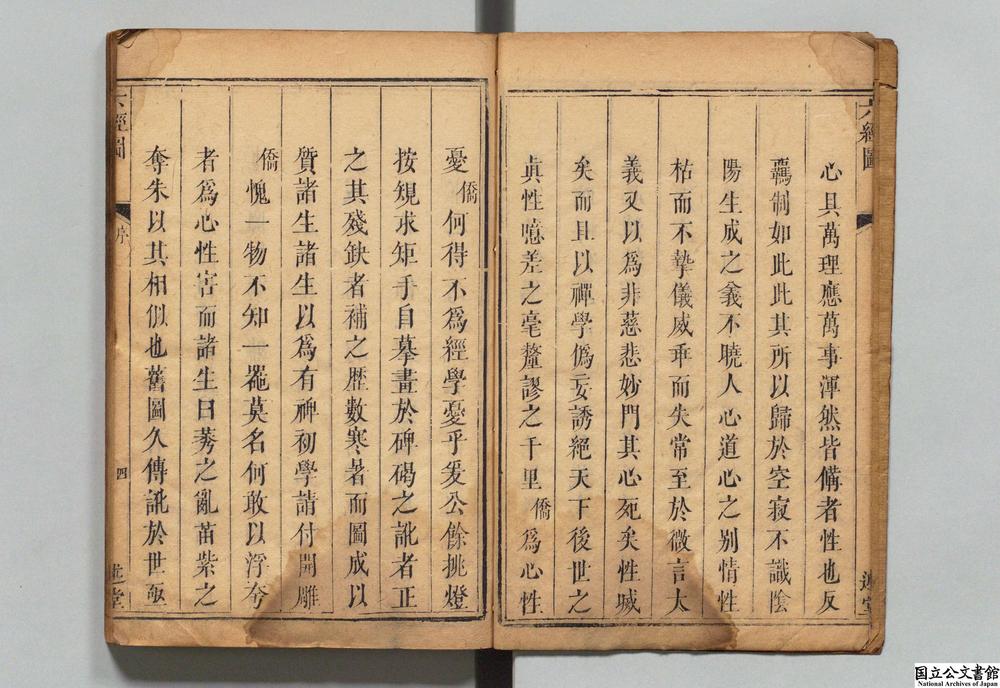 六經圖
心具萬理應萬事渾然皆備者性也反
羈制如此此其所以歸於空寂不識陰
陽生成之義不曉人心道心之别情性
枯而不摯儀威乖而失常至於微言大
義又以為非慈悲妙門其心死矣性
矣而且以禪學僞妄誘絕天下後世之
眞性噫差之毫釐謬之千里僑為心性
憂僑何得不為經學憂乎爰公餘挑燈
按規求矩手自摹畫於碑碣之訛者正
之其殘缺者補之歷數寒暑而圖成以
質諸生諸生以為有裨初學請付開雕
僑愧一物不知一罷莫名何敢以浮夸
者為心性害而諸生曰莠之亂苗紫之
奪朱以其相似也舊圖久傳訛於世亟
六經圖
序
四
国立公文書館
National Archives of Japan